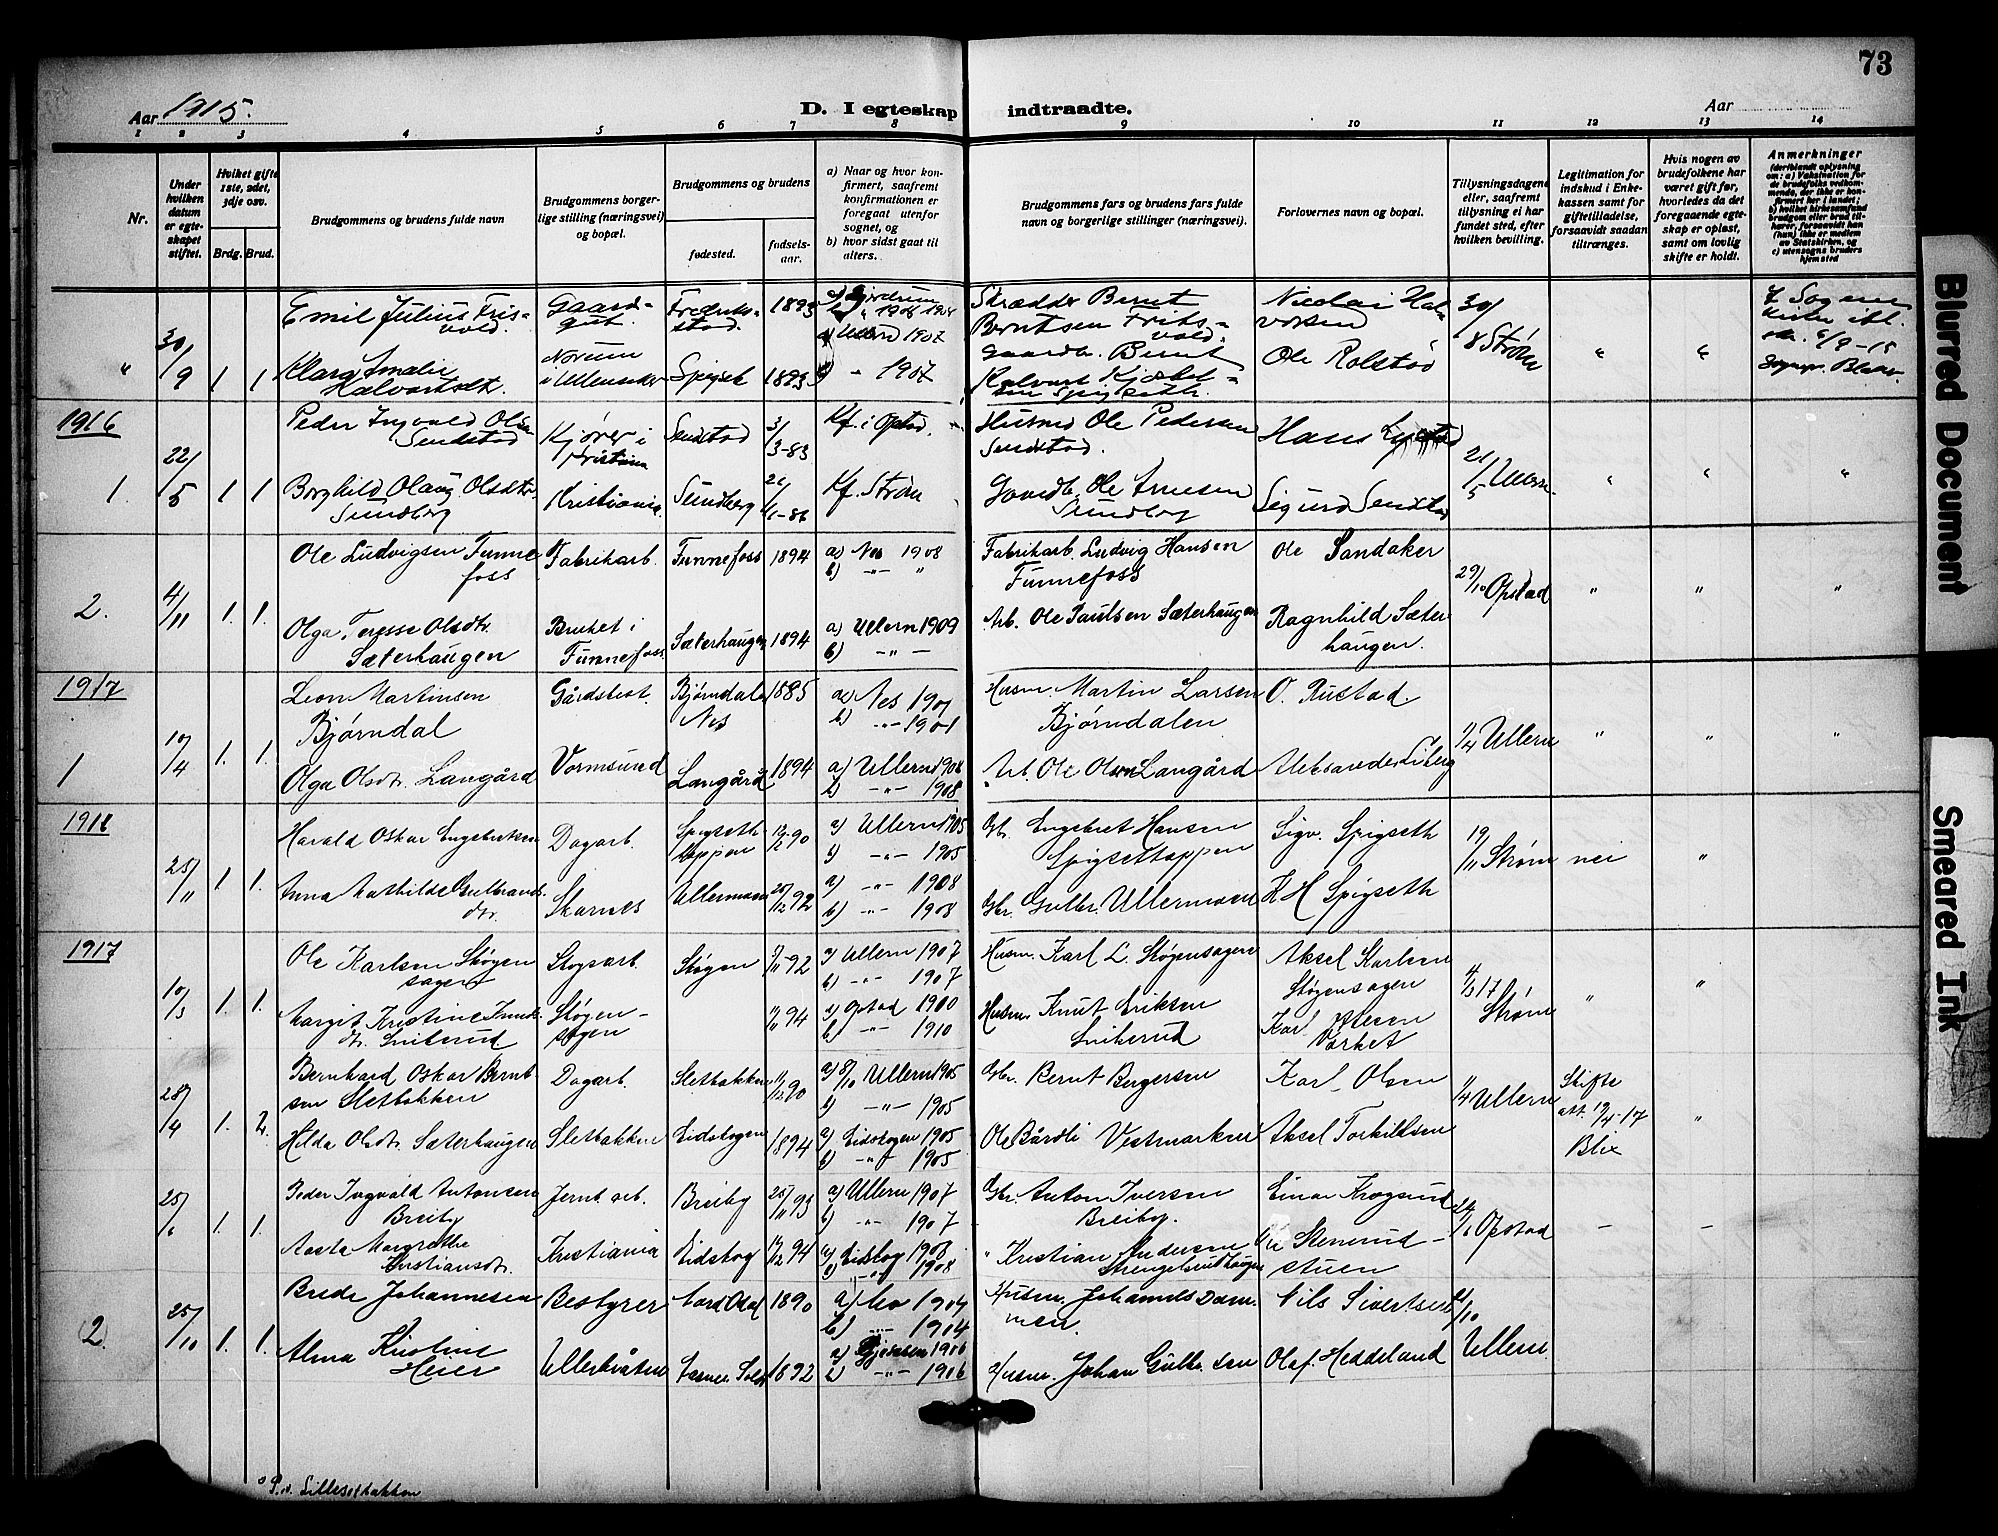 73
Aar 1915.
D. I egteskap indtraadte.
Aar
1 2 3 4 5 6 7 8 9 10 11 12 13 14
Nr.
Under hvilken datum er egteskapet stiftet.
Hvilket gifte 1ste, 2det, 3dje osv.
Brdg. Brud.
Brudgommens og brudens fulde navn
Brudgommens borgerlige stilling (næringsvei) og bopæl.
Brudgommens og brudens
fødested.
fødselsaar.
a) Naar og hvor konfirmert, saafremt konfirmationen er foregaat utenfor sognet, og
b) hvor sidst gaat til alters.
Brudgommens fars og brudens fars fulde navn og borgerlige stillinger (næringsvei).
Forlovernes navn og bopæl.
Tillysningsdagene eller, saafremt tillysning ei har fundet sted, efter hvilken bevilling.
Legitimation for indskud i Enkekassen samt for giftetilladelse, forsaavidt saadan tiltrænges.
Hvis nogen av brudefolkene har været gift før, hvorledes da det foregaaende egteskap er opløst, samt om lovlig skifte er holdt.
Anmerkninger
(deriblandt oplysning om: a) Vaksination for de brudefolks vedkommende, der ikke er konfirmert her i landet; b) hvilket kirkesamfund brudgom eller brud tilhører, forsaavidt han (hun) ikke er medlem av Statskirken, og c) utensogns bruders hjemsted
" 30/9 1 1
Emil Julius Frisvold. Gaardgut. Fredriksstad. 1893 Ullern 1907
Skrædder Bernt Berntsen Fritsvold. Nicolai Halvorsen 30/8 Strøm " "
Klara Amalie Halvorsdtr. Norum i Ullensaker Spigset 1893 " 1907
Gaardb. Bernt Ole Rolstad
1916
1. 22/5 1 1
Peder Ingvald Olsen Sundstad Kjører i Kristiania Sundstad 3/3-83 Kf. i Opstad.
Husmd Ole Pedersen Sundstad. Hans 21/5 Ullern " " "
Borghild Olaug Olsdtr. Sundberg Kristiania. Sundberg Kf. Strøm
Gaardb. Ole Arnesen Sundberg Sigurd Sundstad
2. 4/11 1. 1.
Ole Ludvigsen Funnefoss Fabrikarb. Funnefoss 1894 a) Nes 1908 b) -"- "
Fabrikarb. Ludvig Hansen Funnefoss Ole Sandaker 29/10 Opstad " " "
Olga Teresse Olsdtr. Sæterhaugen Bruket i Funnefoss. Sæterhaugen 1894 a) Ullern 1909 b) -"- -
Arb. Ole Paulsen Sæterhaugen Ragnhild Sæterhaugen.
1917
1 10/4 1. 1.
Leon Martinsen Bjørndal Gårdsbest. Bjørndalen Nes 1885 a) Nes 1901 b) -"- 1901
Husm. Martin Larsen Bjørndalen O. Rustad 1/4 Ullern " " "
Olga Olsdtr. Langård Vormsund Langård 1894 a) Ullern 1908 b) -"- 1908
Arb. Ole Olsen Langård Aleksander Liberg
1916
25/11 1. 1.
Harald Oskar Engebretsen Dagarb. Spigsethtoppen 90 a) Ullern 1905 b) -"- 1905
Gbr. Engebret Hansen Spigsettoppen Sigv. Spigseth 19/11 Strøm nei "
Anna Mathilde Gulbrandsdtr. Skarnes Ullernmoen 25/12 92 a) -"- 1908 b) -"- 1908
Gbr. Gulbr. Ullernmoen K H Spigseth
1917
10/3 1. 1.
Ole Karlsen Støgensagen Skogsarb. Støgen 92 a) Ullern 1907 b) -"- 1907
Husm. Karl L. Støgensagen Aksel Karlsen Støgensagen 4/3 17 Strøm " "
Margit Kristine Knutsdtr. Snikerud Støgensagen 94 a) Opstad 1910 b) -"- 1910
Husm. Knut Eriksen Snikerud Karl Olsen
28/4 1. 2.
Bernhard Oskar Berntsen Sletbakken Dagarb. Sletbakken 90 a) 8/10 Ullern 1905 b) -"- 1905
Gbr. Bernt Bergersen Karl Olsen 1/4 Ullern Skifte att. 19/4-17 Blix "
Hilda Olsdtr. Sæterhaugen Sletbakken Eidskogen 1894 a) Eidskogen 1905 b) -"- 1905
Ole Bårdli Vestmarken Aksel Torkildsen
25/6 1. 1.
Peder Ingvald Antonsen Breiby Jernb. arb. Breiby 25/11 93 a) Ullern 1907 b) -"- 1907
Gbr. Anton Iversen Breiby. Einar Krogsrud 24/6 Opstad - -
Aasta Margrethe Kristiansdtr. Kristiania Eidskog 94 a) Eidskog 1908 b) -"- 1908
" Kristian Andersen Ole Stenerudstuen
(2) 25/10 1. 1.
Brede Johannesen Bestyrer Nord Odal 1890 1904 b) -"- 1904
Husm. Johannes Dammen. Nils Sivertsen Ullern
Alma Kristine Heier Ullerkvåten 1892 1906 b) -"- 1906
Husm. Johan Gulbr.sen Olaf Heddeland
Blurred Document
Smeared Ink